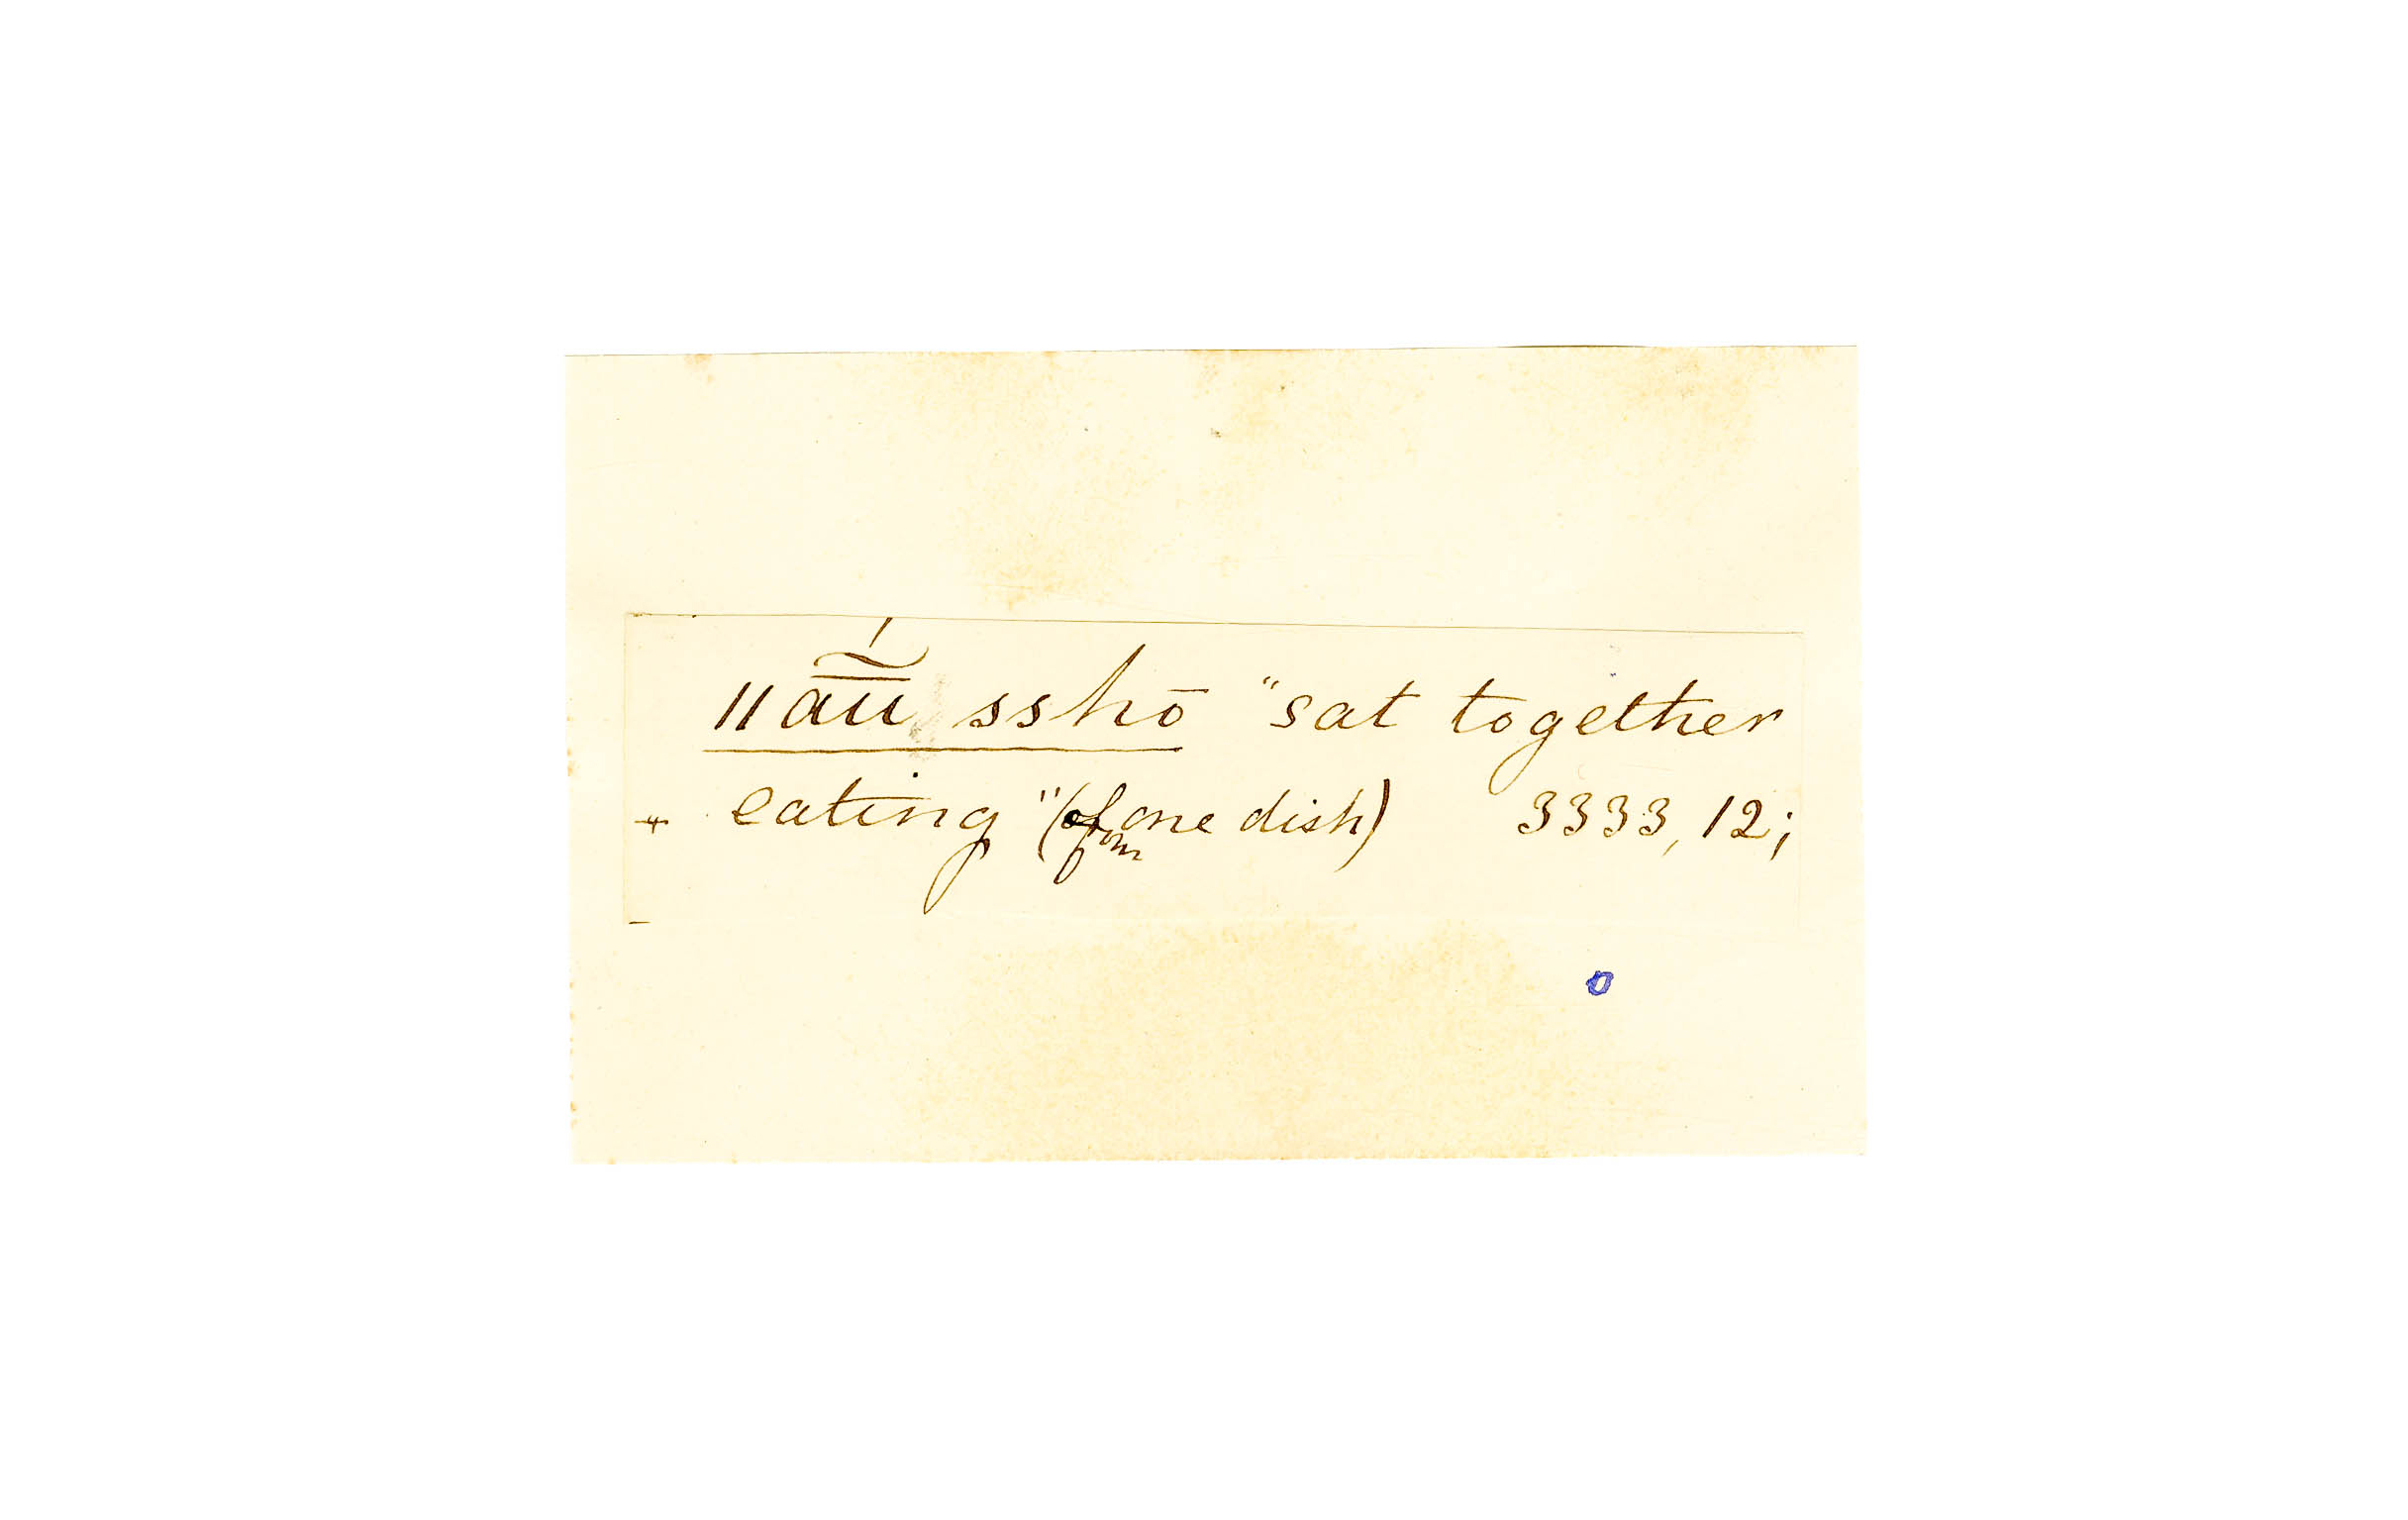 ǁā̰́ū sshō "sat together
+ eating" (from one dish) 3333, 12;
o